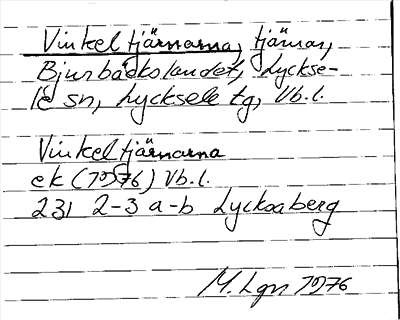 Vinkeltjärnarna, tjärnar,
Bjurbäckslandet, Lyckse-
le sn, Lycksele tg, Vb.l.
Vinkeltjärnarna
ek (1976) Vb.l.
231 2-3 a-b Lycksaberg
M. Lgn 1976